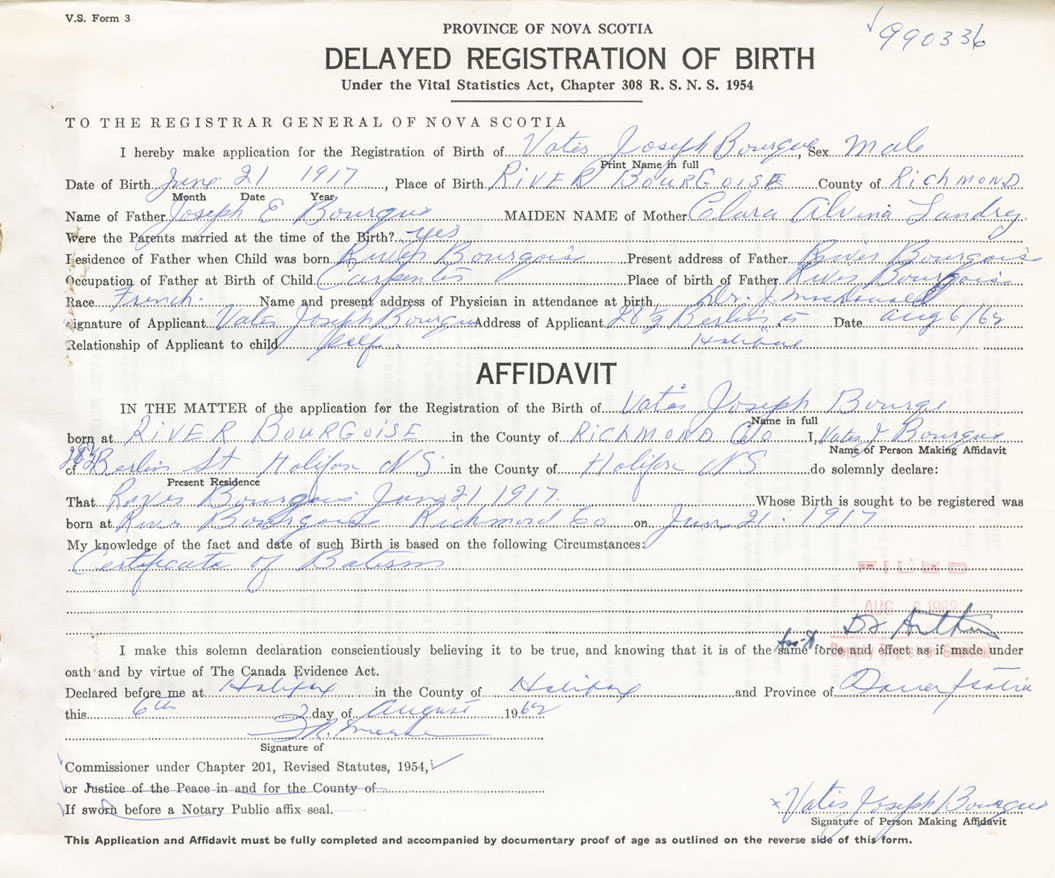 V.S. Form 3
990336
PROVINCE OF NOVA SCOTIA
DELAYED REGISTRATION OF BIRTH
Under the Vital Statistics Act, Chapter 308 R. S. N. S. 1954
TO THE REGISTRAR GENERAL OF NOVA SCOTIA
I hereby make application for the Registration of Birth of Vates Joseph Bourque, Sex Male
Print Name in full
Date of Birth June 21 1917, Place of Birth RIVER BOURGOISE County of RICHMOND
Month Date Year
Name of Father Joseph E Bourque MAIDEN NAME of Mother Clara Alvina Landry
Were the Parents married at the time of the Birth? yes
Residence of Father when Child was born River Bourgois Present address of Father River Bourgois
Occupation of Father at Birth of Child Carpenter Place of birth of Father River Bourgois
Race French. Name and present address of Physician in attendance at birth Dr. J. MacDonald
Signature of Applicant Vates Joseph Bourque Address of Applicant Berlin St Date Aug 6/62
Relationship of Applicant to child self. Halifax
AFFIDAVIT
IN THE MATTER of the application for the Registration of the Birth of Vates Joseph Bourge
Name in full
born at RIVER BOURGOISE in the County of RICHMOND Co I, Vates J Bourque
Name of Person Making Affidavit
of Berlin St Halifax NS in the County of Halifax NS do solemnly declare:
Present Residence
That River Bourgois June 21 1917. Whose Birth is sought to be registered was
born at River Bourgois Richmond Co on June 21. 1917
My knowledge of the fact and date of such Birth is based on the following Circumstances:
Certificate of Batism
FILED
AUG 6 1962
I make this solemn declaration conscientiously believing it to be true, and knowing that it is of the same force and effect as if made under
oath and by virtue of The Canada Evidence Act.
Declared before me at Halifax in the County of Halifax and Province of
this 6th day of August 1962
Signature of
Commissioner under Chapter 201, Revised Statutes, 1954,
or Justice of the Peace in and for the County of
If sworn before a Notary Public affix seal.
x Vates Joseph Bourque
Signature of Person Making Affidavit
This Application and Affidavit must be fully completed and accompanied by documentary proof of age as outlined on the reverse side of this form.